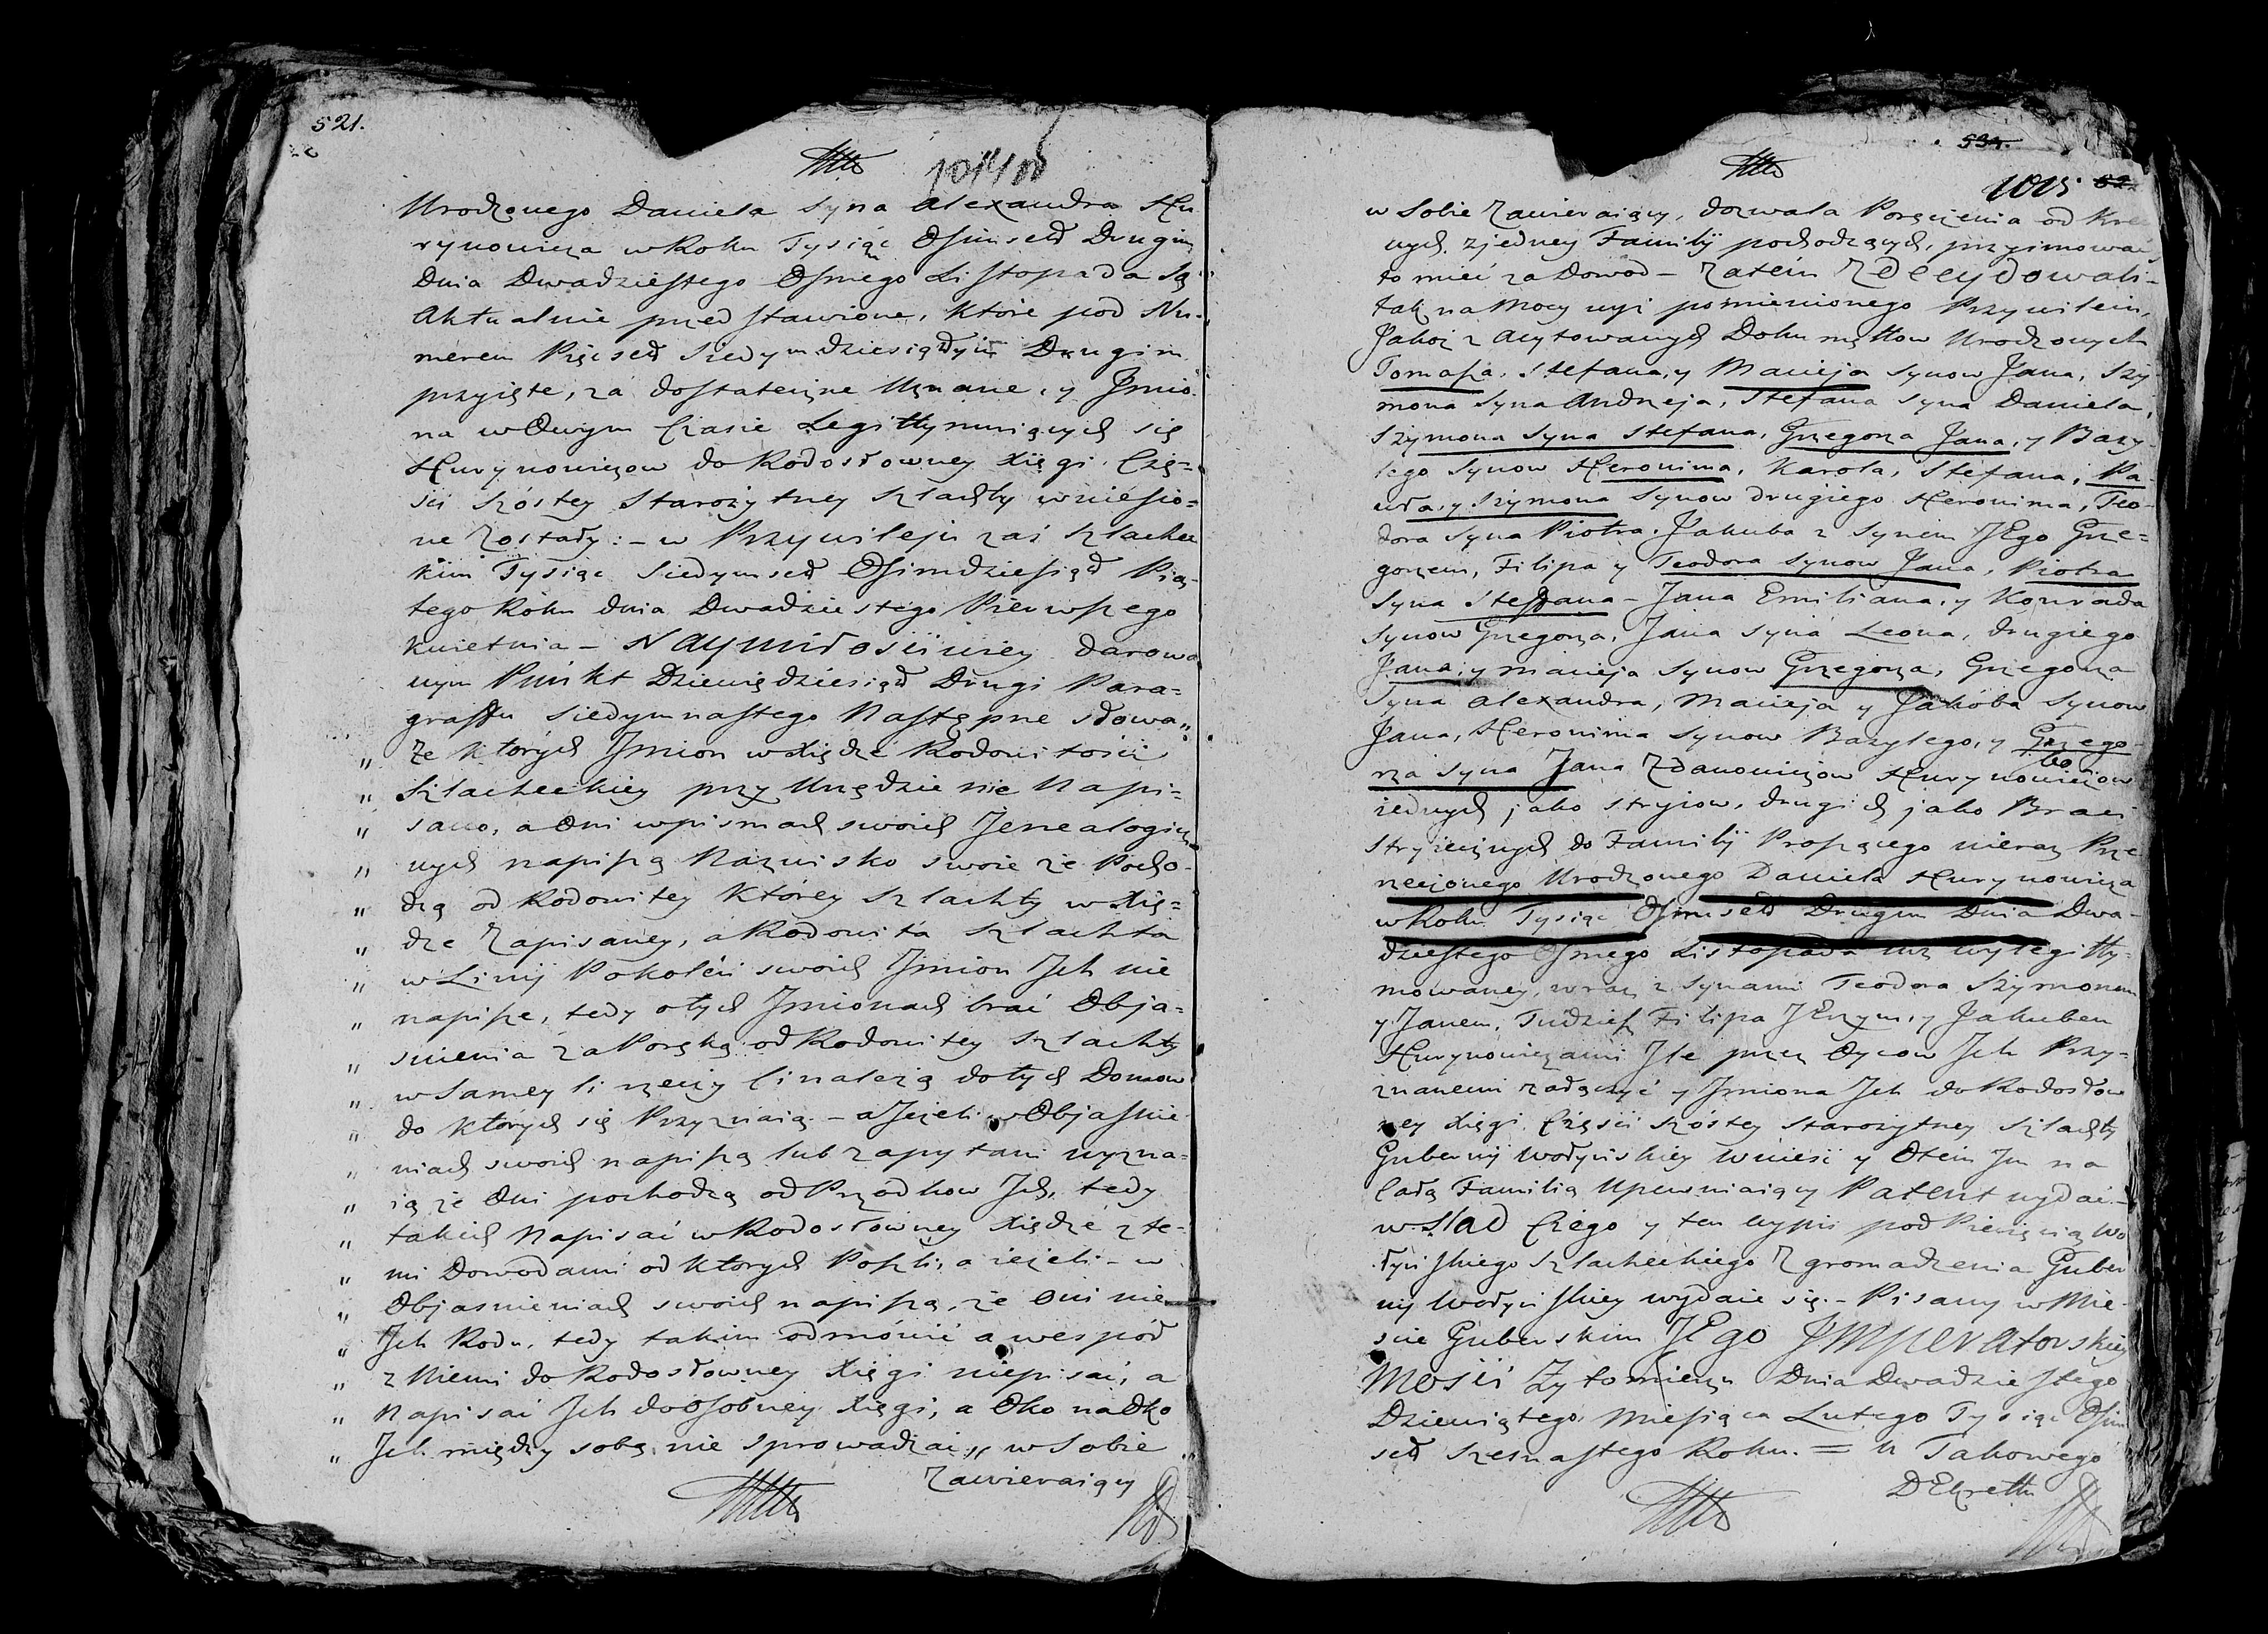 521.
Urodzonego Daniela syna Alexandra Hu
rynowicza w Roku Tysiąc Ośmset Drugim
Dnia Dwadziestego Osmego Listopada są
Aktualnie przedstawione, które pod Nu-
merem Pięcset Siedymdziesiątym Drugim
przyięte, za dostateczne Uznane, y Jmio-
na w Owym Czasie Legittymuiących się
Hurynowiczow do Rodosłowney Xięgi Czę=
ści szóstey Starożytney szlachty wniesio=
ne Zostały: – w Przywileju zaś szlachec
kim Tysiąc Siedymset Osimdziesiąt Pią-
tego Roku dnia Dwadziestego Pierwszego
Kwietnia – Naymiłościwiey darowa
nym Punkt Dziewiędziesiąt Drugi Para=
graffu Siedymnastego Następne słowa„
„ Ze których Jmion w Xiędze Rodowitości
„ Szlacheckiey przy Urzędzie nie Napi=
„ sano, a Oni w pismach swoich Jenealogicz
„ nych napiszą Nazwisko swoie że Pocho-
„ dzą od Rodowitey którey szlachty w Xię=
„ dze Zapisaney, a Rodowita szlachta
„ w Linij Pokoleń swoich Jmion Jch nie
„ napisze, tedy o tych Jmionach brać Obja=
„ snienia za Poręką od Rodowitey szlachty
„ w Samey li rzeczy ci należą do tych Domow
„ do których się Przyznaią – a Jeżeli w Objaśnie-
„ niach swoich napiszą lub zapytani wyzna=
„ ią że Oni pochodzą od Przodkow Jch, tedy
„ takich Napisać w Rodosłowney Xiędze z te-
„ mi Dowodami od których Poszli, a ieżeli – w
„ Objasnieniach swoich napiszą, że Oni nie
„ Jch Rodu, tedy takim odmówić a wespół
„ z Niemi do Rodosłowney Xięgi niepisać, a
„ Napisać Jch do Osobney Xięgi, a Oko na Oko
„ Jch między sobą nie sprowadzać„ w Sobie
Zawieraiący
534.
1015
w Sobie Zawieraiący, dozwala Poręczenia od Kre
nych z jedney Familij pochodzących, przyimować
to mieć za Dowod – Zatém Zdecydowali –
tak na Mocy wyż pomienionego Przywileiu,
Jakoż z Acytowanych Dokumęttow Urodzonych
Tomasza, Stefana, y Macieja synow Jana, Szy-
mona Syna Andrzeja, Stefana Syna Daniela,
Szymona Syna Stefana, Grzegorza Jana, y Bazy-
lego Synow Heronima, Karola, Stefana, Pa-
wła, y Szymona Synow drugiego Heronima, Teo-
dora Syna Piotra, Jakuba z Synem JEgo Grze=
gorzem, Filipa y Teodora Synow Jana, Piotra
Syna Steffana – Jana Emiliana, y Konrada
Synow Grzegorza, Jana Syna Leona, drugiego
Jana, y Macieja Synow Grzegorza, Grzegorza
Syna Alexandra, Macieja y Jakóba Synow
Jana, Heronima Synow Bazylego, y Grzego-
rza Syna Jana Zdanowiczow Hurynowiczow
iednych jako stryiow, drugich jako Braci
Stryiecznych do Familij Proszącego nieraz Prze
rzeczonego Urodzonego Daniela Hurynowicza
w Roku Tysiąc Ośmset Drugim Dnia Dwa-
dziestego Osmego Listopada uż wylegitty-
mowaney, wraz z Synami Teodora Szymonem
y Janem, Tudzież Filipa JErzym, y Jakubem
Hurynowiczami Jle przez Oycow Jch Przy-
znanemi załączyć y Jmiona Jch do Rodosłow
ney Xięgi Części szóstey Starożytney szlachty
Gubernij Wołyńskiey Wnieść y Otém Jm na
Całą Familią Upewniaiący Patent wydać. –
w Slad Czego y ten wypis pod Pieczęcią Wo
łyńskiego Szlacheckiego Zgromadzenia Guber
nij Wołyńskiey wydaie się. – Pisany w Mie-
ście Guberskim JEgo Jmperatorskiey
Mości Żytomierzu Dnia Dwadziestego
Dziewiątego, Miesiąca Lutego Tysiąc Ośm
set Szesnastego Roku. = U Takowego
DEkrettu